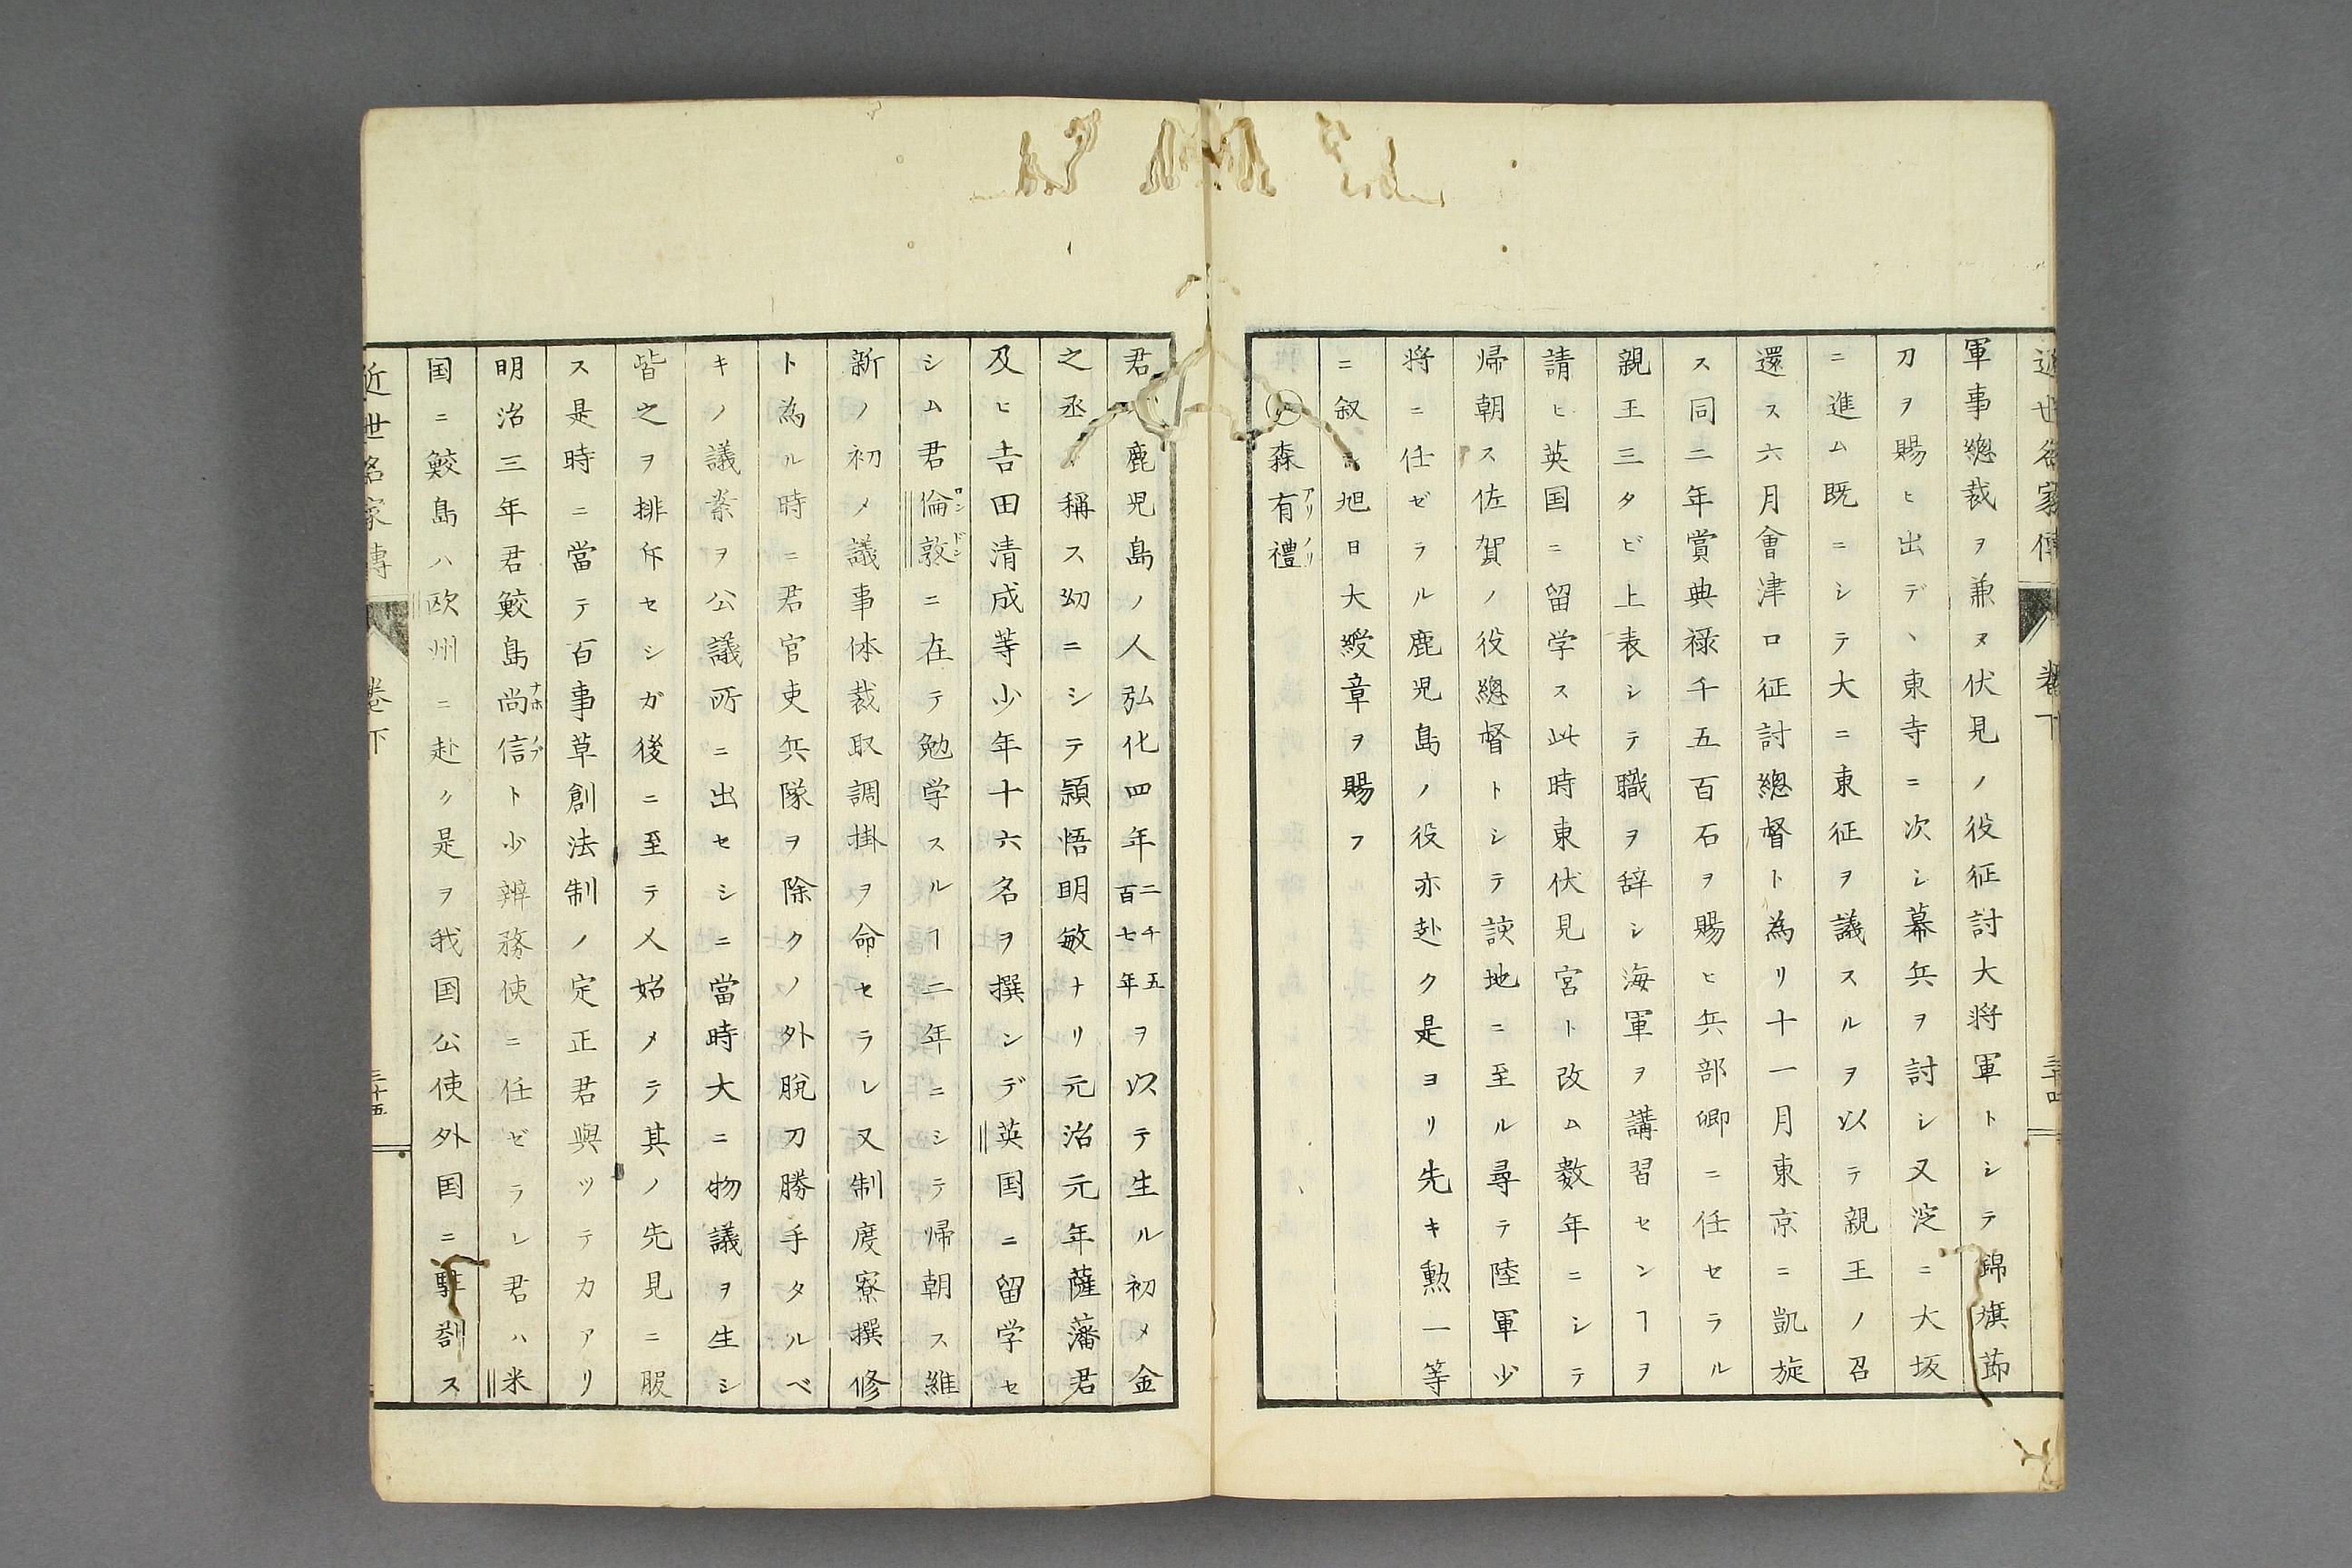 近世名家傳 卷下 三十四
軍事總裁ヲ兼ヌ伏見ノ役征討大将軍トシテ錦旗節
刀ヲ賜ヒ出デヽ東寺ニ次シ幕兵ヲ討シ又淀ニ大坂
ニ進ム既ニシテ大ニ東征ヲ議スルヲ以テ親王ノ召
還ス六月會津口征討總督ト為リ十一月東京ニ凱旋
ス同二年賞典禄千五百石ヲ賜ヒ兵部卿ニ任セラル
親王三タビ上表シテ職ヲ辞シ海軍ヲ講習センヿヲ
請ヒ英国ニ留学ス此時東伏見宮ト改ム数年ニシテ
帰朝ス佐賀ノ役總督トシテ該地ニ至ル尋テ陸軍少
将ニ任ゼラル鹿児島ノ役亦赴ク是ヨリ先キ勲一等
ニ叙シ旭日大綬章ヲ賜フ
○森有禮アリノリ
君ハ鹿児島ノ人弘化四年二千五百七年ヲ以テ生ル初メ金
之丞ト稱ス幼ニシテ頴悟明敏ナリ元治元年薩藩君
及ヒ吉田清成等少年十六名ヲ撰ンデ英国ニ留学セ
シム君倫敦ロンドンニ在テ勉学スルヿ二年ニシテ帰朝ス維
新ノ初メ議事体裁取調掛ヲ命セラレ又制度寮撰修
ト為ル時ニ君官吏兵隊ヲ除クノ外脱刀勝手タルベ
キノ議案ヲ公議所ニ出セシニ當時大ニ物議ヲ生シ
皆之ヲ排斥セシガ後ニ至テ人始メテ其ノ先見ニ服
ス是時ニ當テ百事草創法制ノ定正君與ツテカアリ
明治三年君鮫島尚信ナホノブト少辨務使ニ任ゼラレ君ハ米
国ニ鮫島ハ欧州ニ赴ク是ヲ我国公使外国ニ駐劄ス
近世名家傳 卷下 三十五